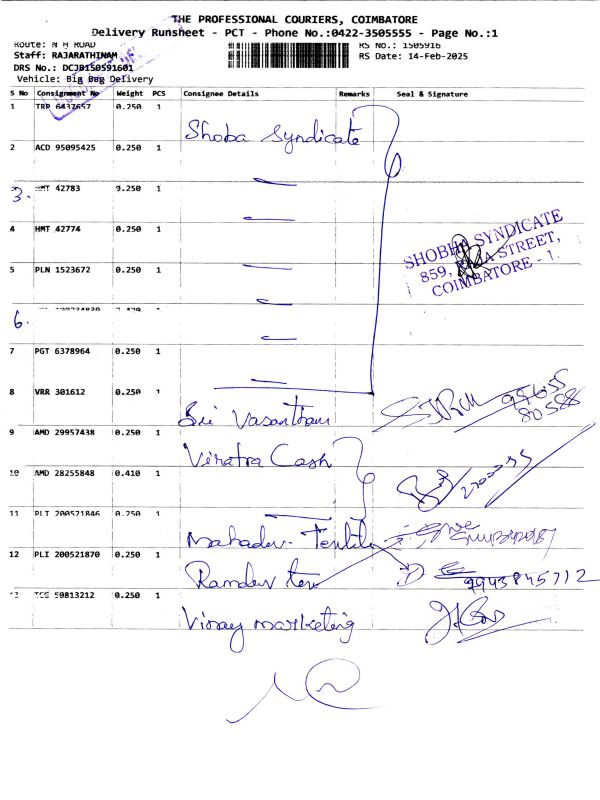 THE PROFESSIONAL COURIERS, COIMBATORE
Delivery Runsheet - PCT - Phone No.:0422-3505555 - Page No.:1
Route: N H ROAD
RS No.: 1505916
Staff: RAJARATHINAM
RS Date: 14-Feb-2025
DRS No.: DCJB150591601
Vehicle: Big Bag Delivery
S No Consignment No Weight PCS Consignee Details Remarks Seal & Signature
1 TRP 6437657 0.250 1
Shoba Syndicate
2 ACD 95095425 0.250 1
3. HMT 42783 0.250 1
4 HMT 42774 0.250 1
SHOBHA SYNDICATE
859, STREET,
COIMBATORE - 1.
5 PLN 1523672 0.250 1
6. 1
7 PGT 6378964 0.250 1
8 VRR 301612 0.250 1
Sri Vasantham
80588
9 AMD 29957438 0.250 1
Viratra Cash
10 AMD 28255848 0.410 1
11 PLI 200521846 0.250 1
Mahadev
12 PLI 200521870 0.250 1
Ramdev tex
9943845712
13 TCS 59813212 0.250 1
Vinay marketing